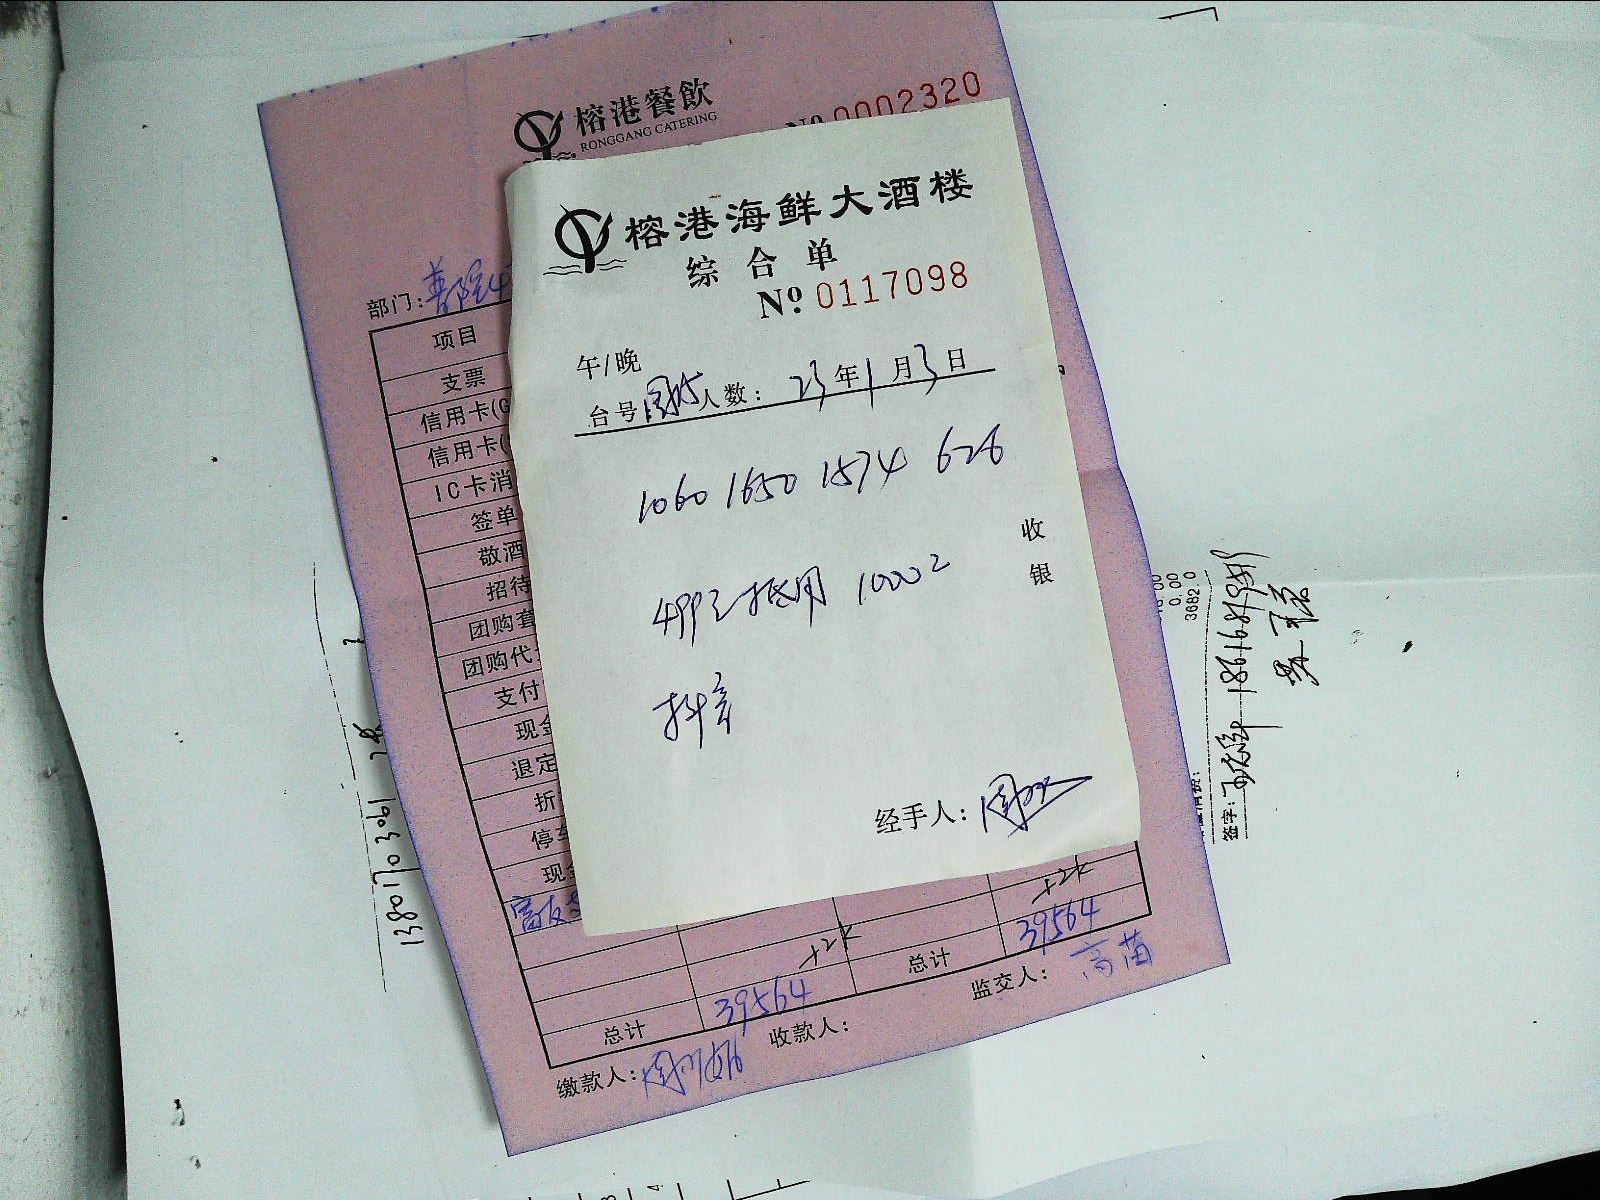 榕港餐飲
RONGGANG CATERING
№ 0002320
榕港海鲜大酒楼
综合单
№ 0117098
午/晚
台号 人数: 23年1月3日
1060 1650 1574 626
499元抵用 1000元
抖音
收银
经手人:
部门:
项目
支票
信用卡(
信用卡(
IC卡消
签单
敬酒
招待
团购套
团购代
支付
现金
退定
折
停车
现金
+2k
+2k
总计 39564 总计 39564
缴款人: 收款人: 监交人: 高苗
0.00
3682.0
签字: 18616819
13801703061